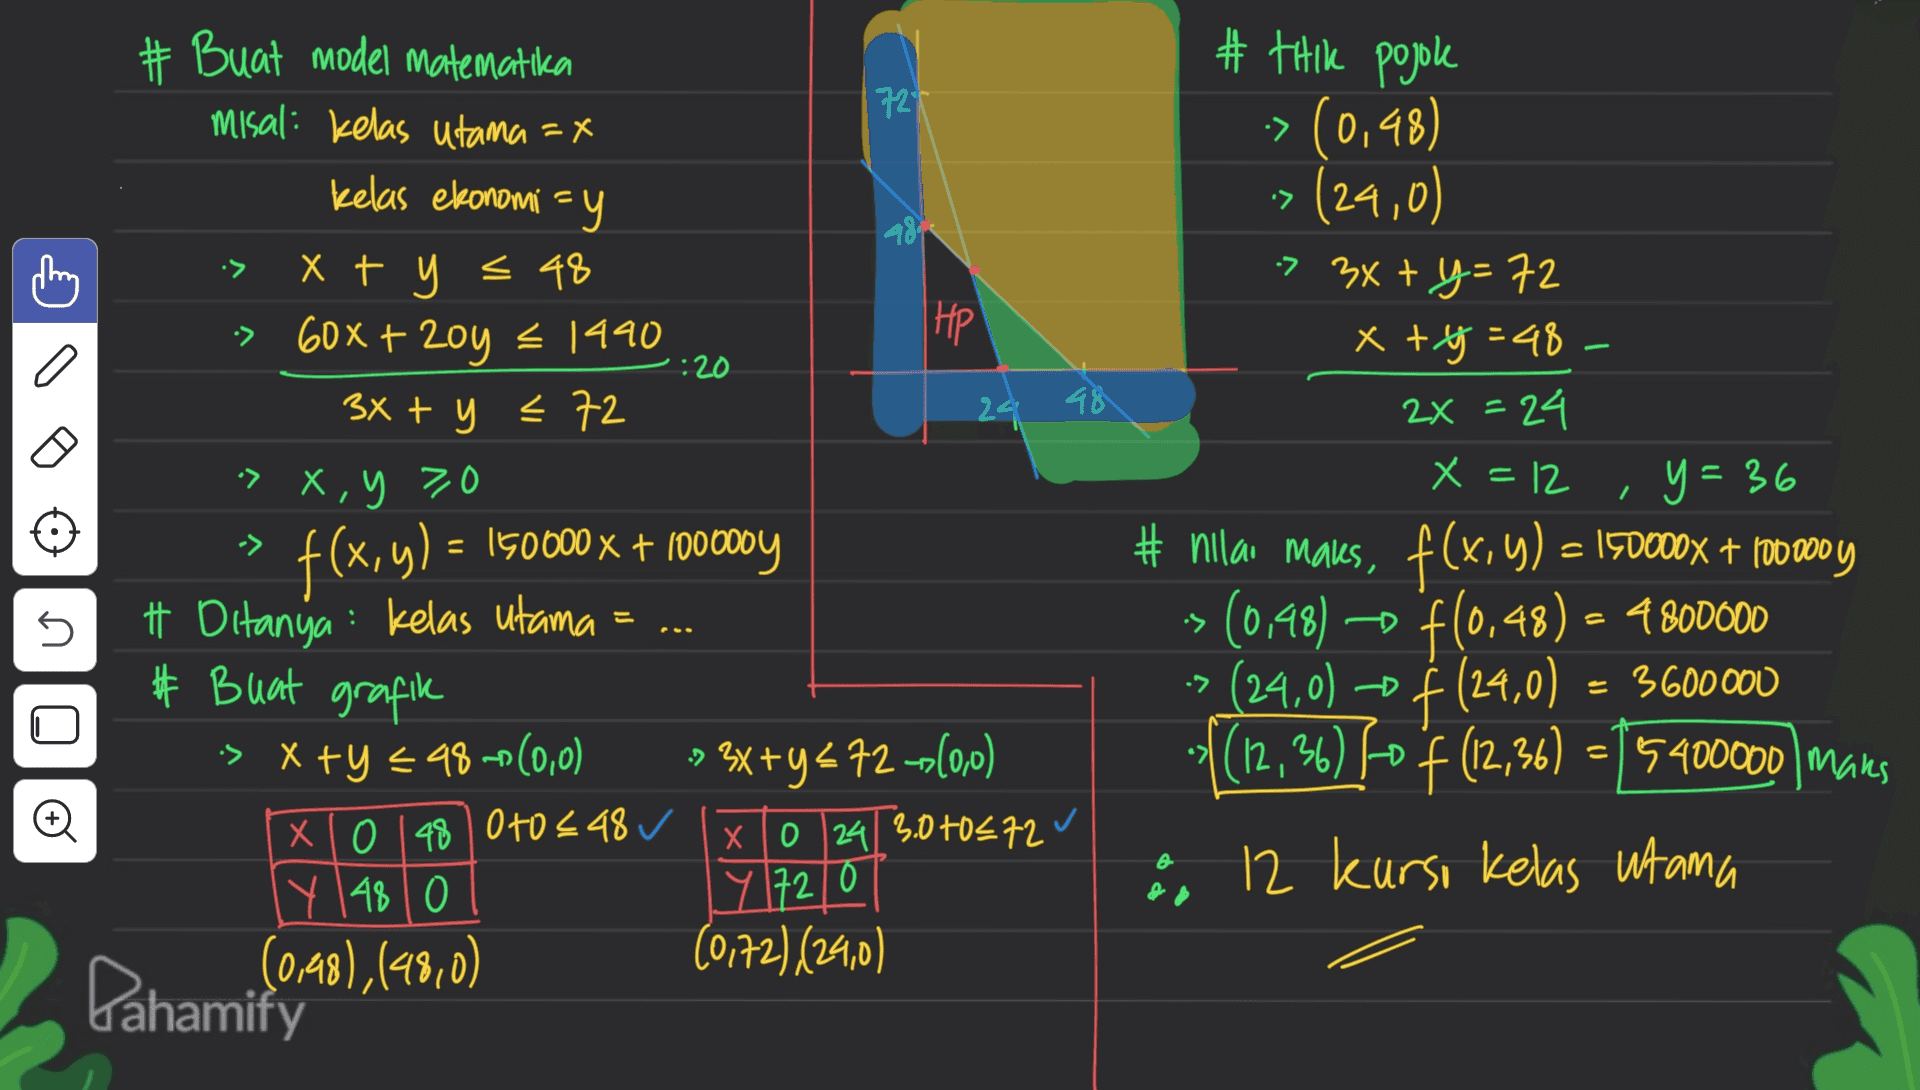 # Buat model matematika
misal: kelas utama = x
kelas ekonomi = y
·> x + y ≤ 48
·> 60x + 20y ≤ 1440
:20
3x + y ≤ 72
·> x, y ≥ 0
·> f(x,y) = 150000x + 100000y
# Ditanya : kelas utama = ...
# Buat grafik
·> x + y ≤ 48 → (0,0)
x 0 48
0+0 ≤ 48 ✓
y 48 0
(0,48), (48,0)
·> 3x + y ≤ 72 → (0,0)
x 0 24
3.0+0 ≤ 72 ✓
y 72 0
(0,72), (24,0)
72
48
HP
24 48
# titik pojok
·> (0,48)
·> (24,0)
·> 3x + y = 72
x + y = 48 -
2x = 24
x = 12 , y = 36
# nilai maks, f(x,y) = 150000x + 100000y
·> (0,48) → f(0,48) = 4800000
·> (24,0) → f(24,0) = 3600000
·> (12,36) → f(12,36) = 5400000 maks
∴ 12 kursi kelas utama
Pahamify